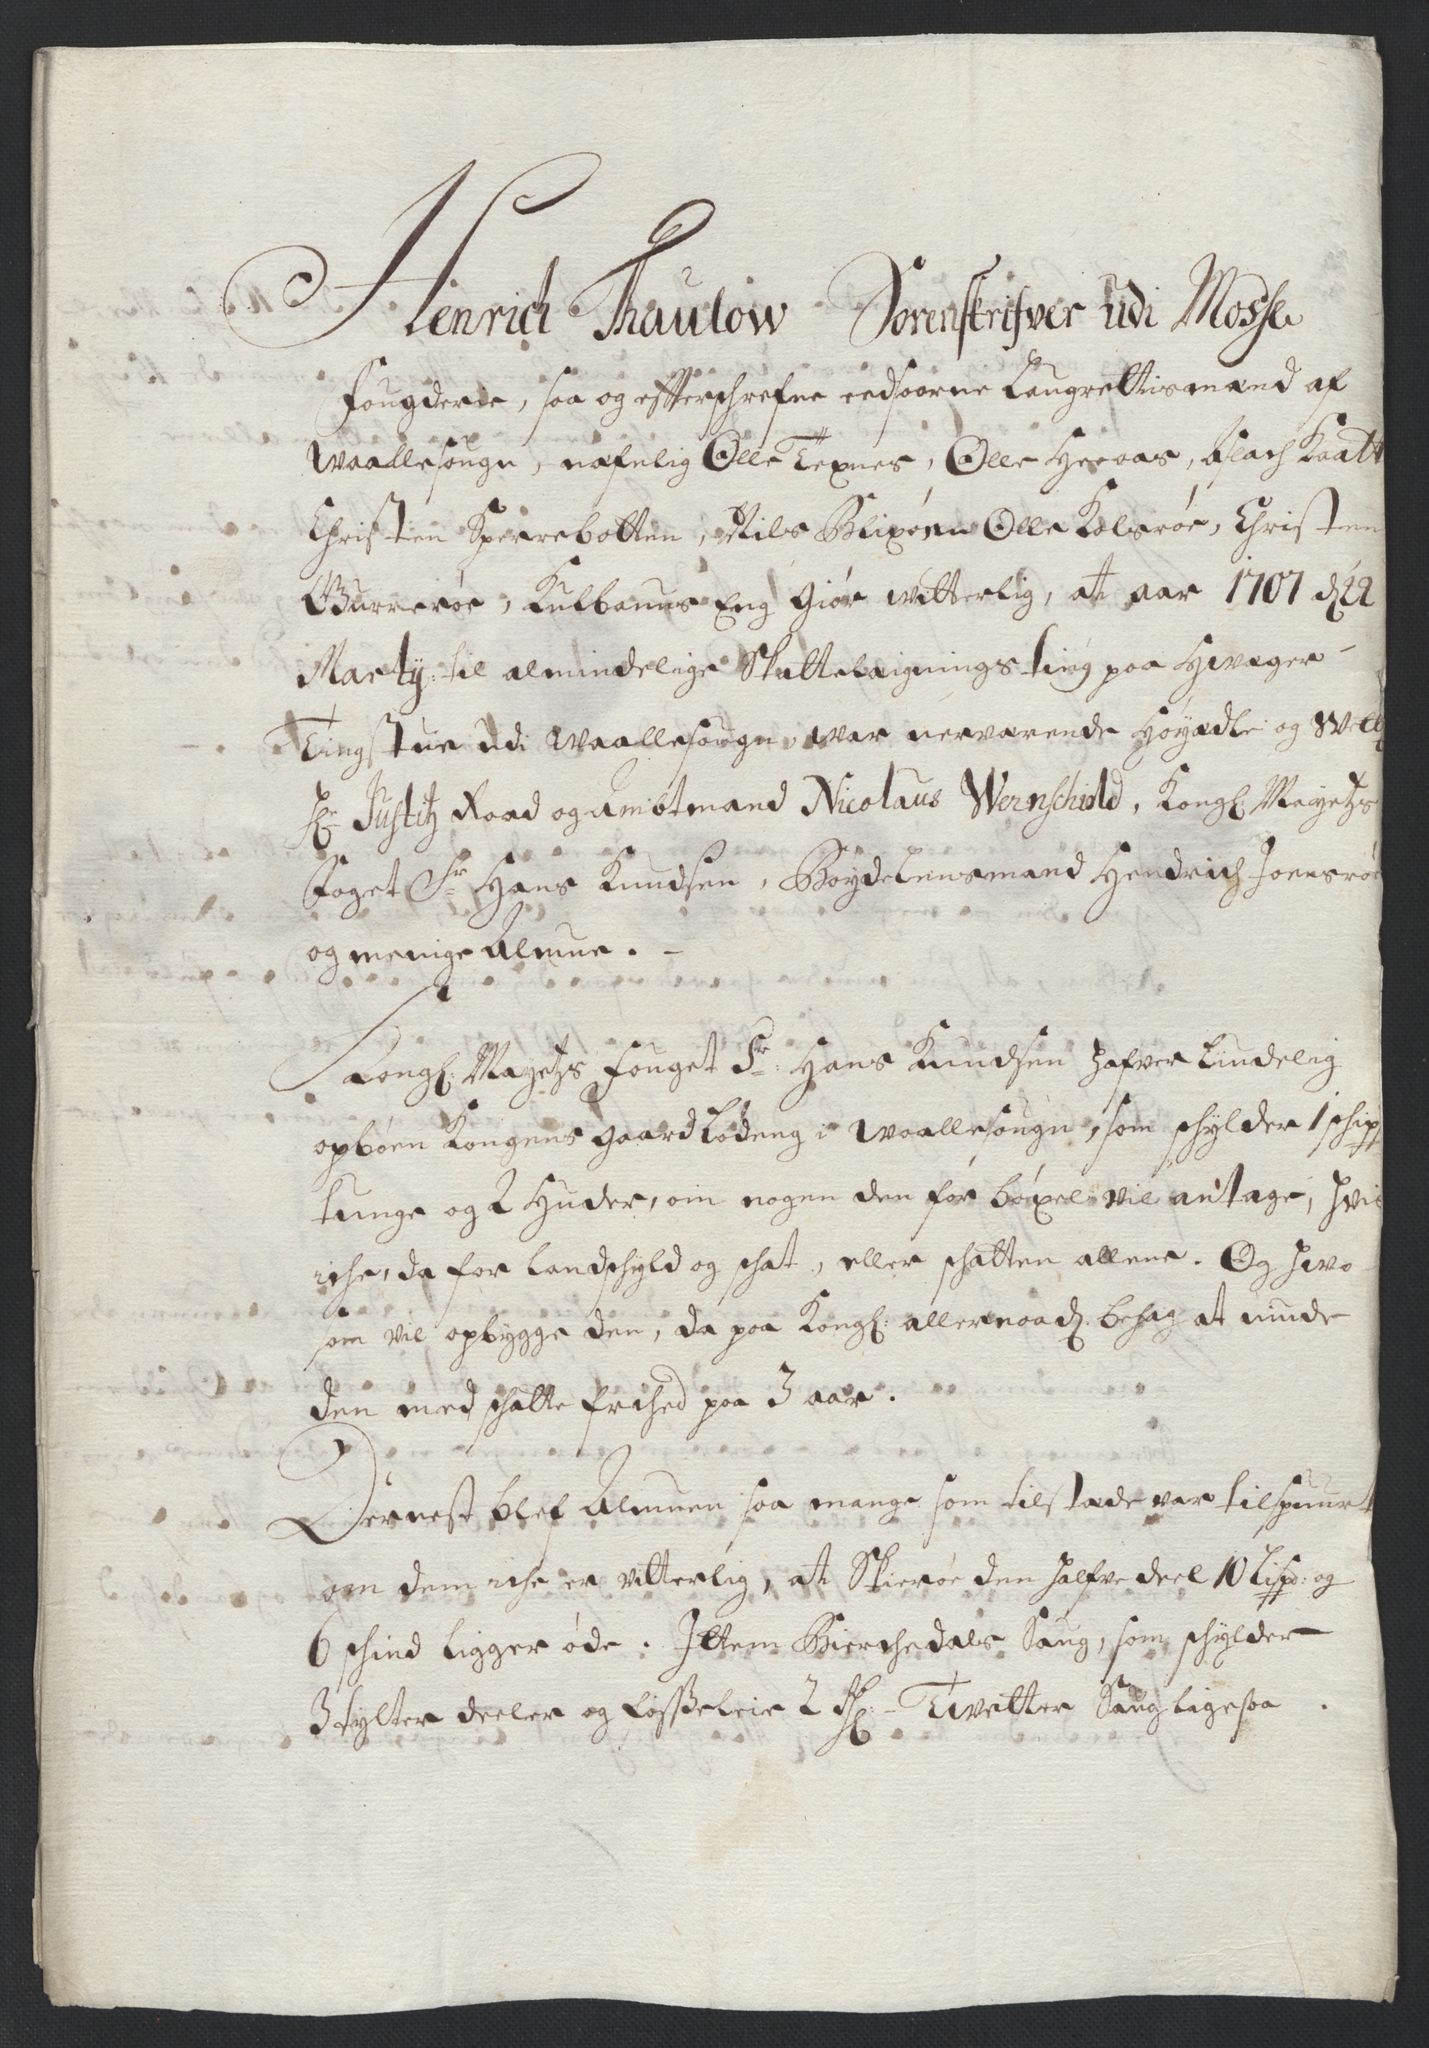 Henrich Thaulow Sorenskrifver udi Mosse
Fougderie, saa og effterschrefne eedsoorne Laugrettismænd af
Waallesougn, nafnlig Olle Texnes, Olle Heeaas, Aslach Kaatt
Christen Sperrebotten, Nils Blixøen Olle Kolsrøe, Christen
Gurrerøe, Kulbanus Eng Giør witterlig, at aar 1707 d 22
Marty: til almindelige Skattelaignings ting paa Hwager
Tingstue udi Waallesougn, war nerværende Høyædle og Welb
Hr Justitz Raad og Ambtmand Nicolaus Wernschiold, Kongl: Mayetz
Foget Sr Hans Knudsen, Bøydelensmand Hendrich Joensrøe
og menige Almue. -
Kongl: Mayetz Fouget Sr: Hans Knudsen hafver lindelig
opbøen Kongens gaard Lødeng i Waallesougn, som schylder 1 schip
tunge og 2 Huder, om nogen den for bøxel vil antage, hvis
iche, da for Landschyld og schat, eller schatten allene. Og hvo
som vil opbygge den, da paa Kongl: allernaad. behag at niude
den med schatte frihed paa 3 aar.
Dernest blef Almuen saa mange som tilstæde var tilspuurt
om dem iche er vitterlig, at Skierøe den halfve deel 10 Lispd: og
6 schind ligger øde. Ittem Bierchedals Saug, som schylder
3 tylter deeler og Løsseleie 2 dl: - Tvetter Saug ligesaa.